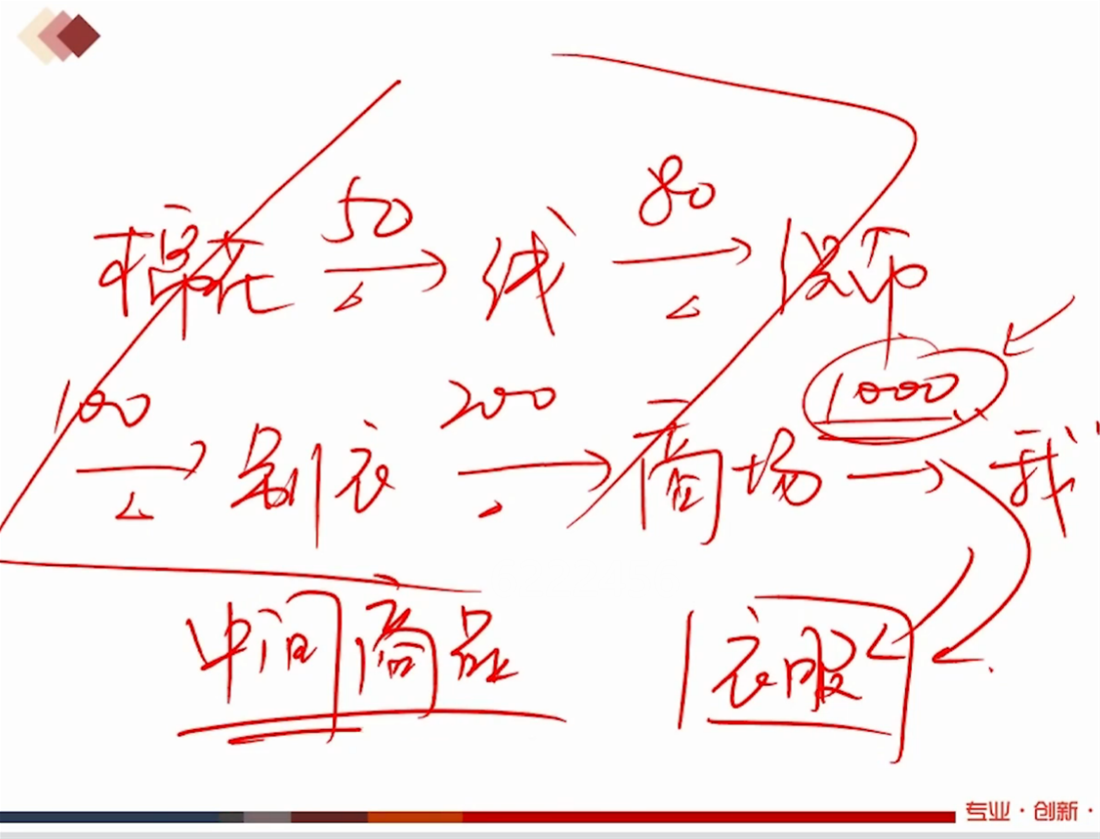 棉花 50 线 80 织布
100 制衣 200 商场 1000 我
中间商品 衣服
专业·创新·